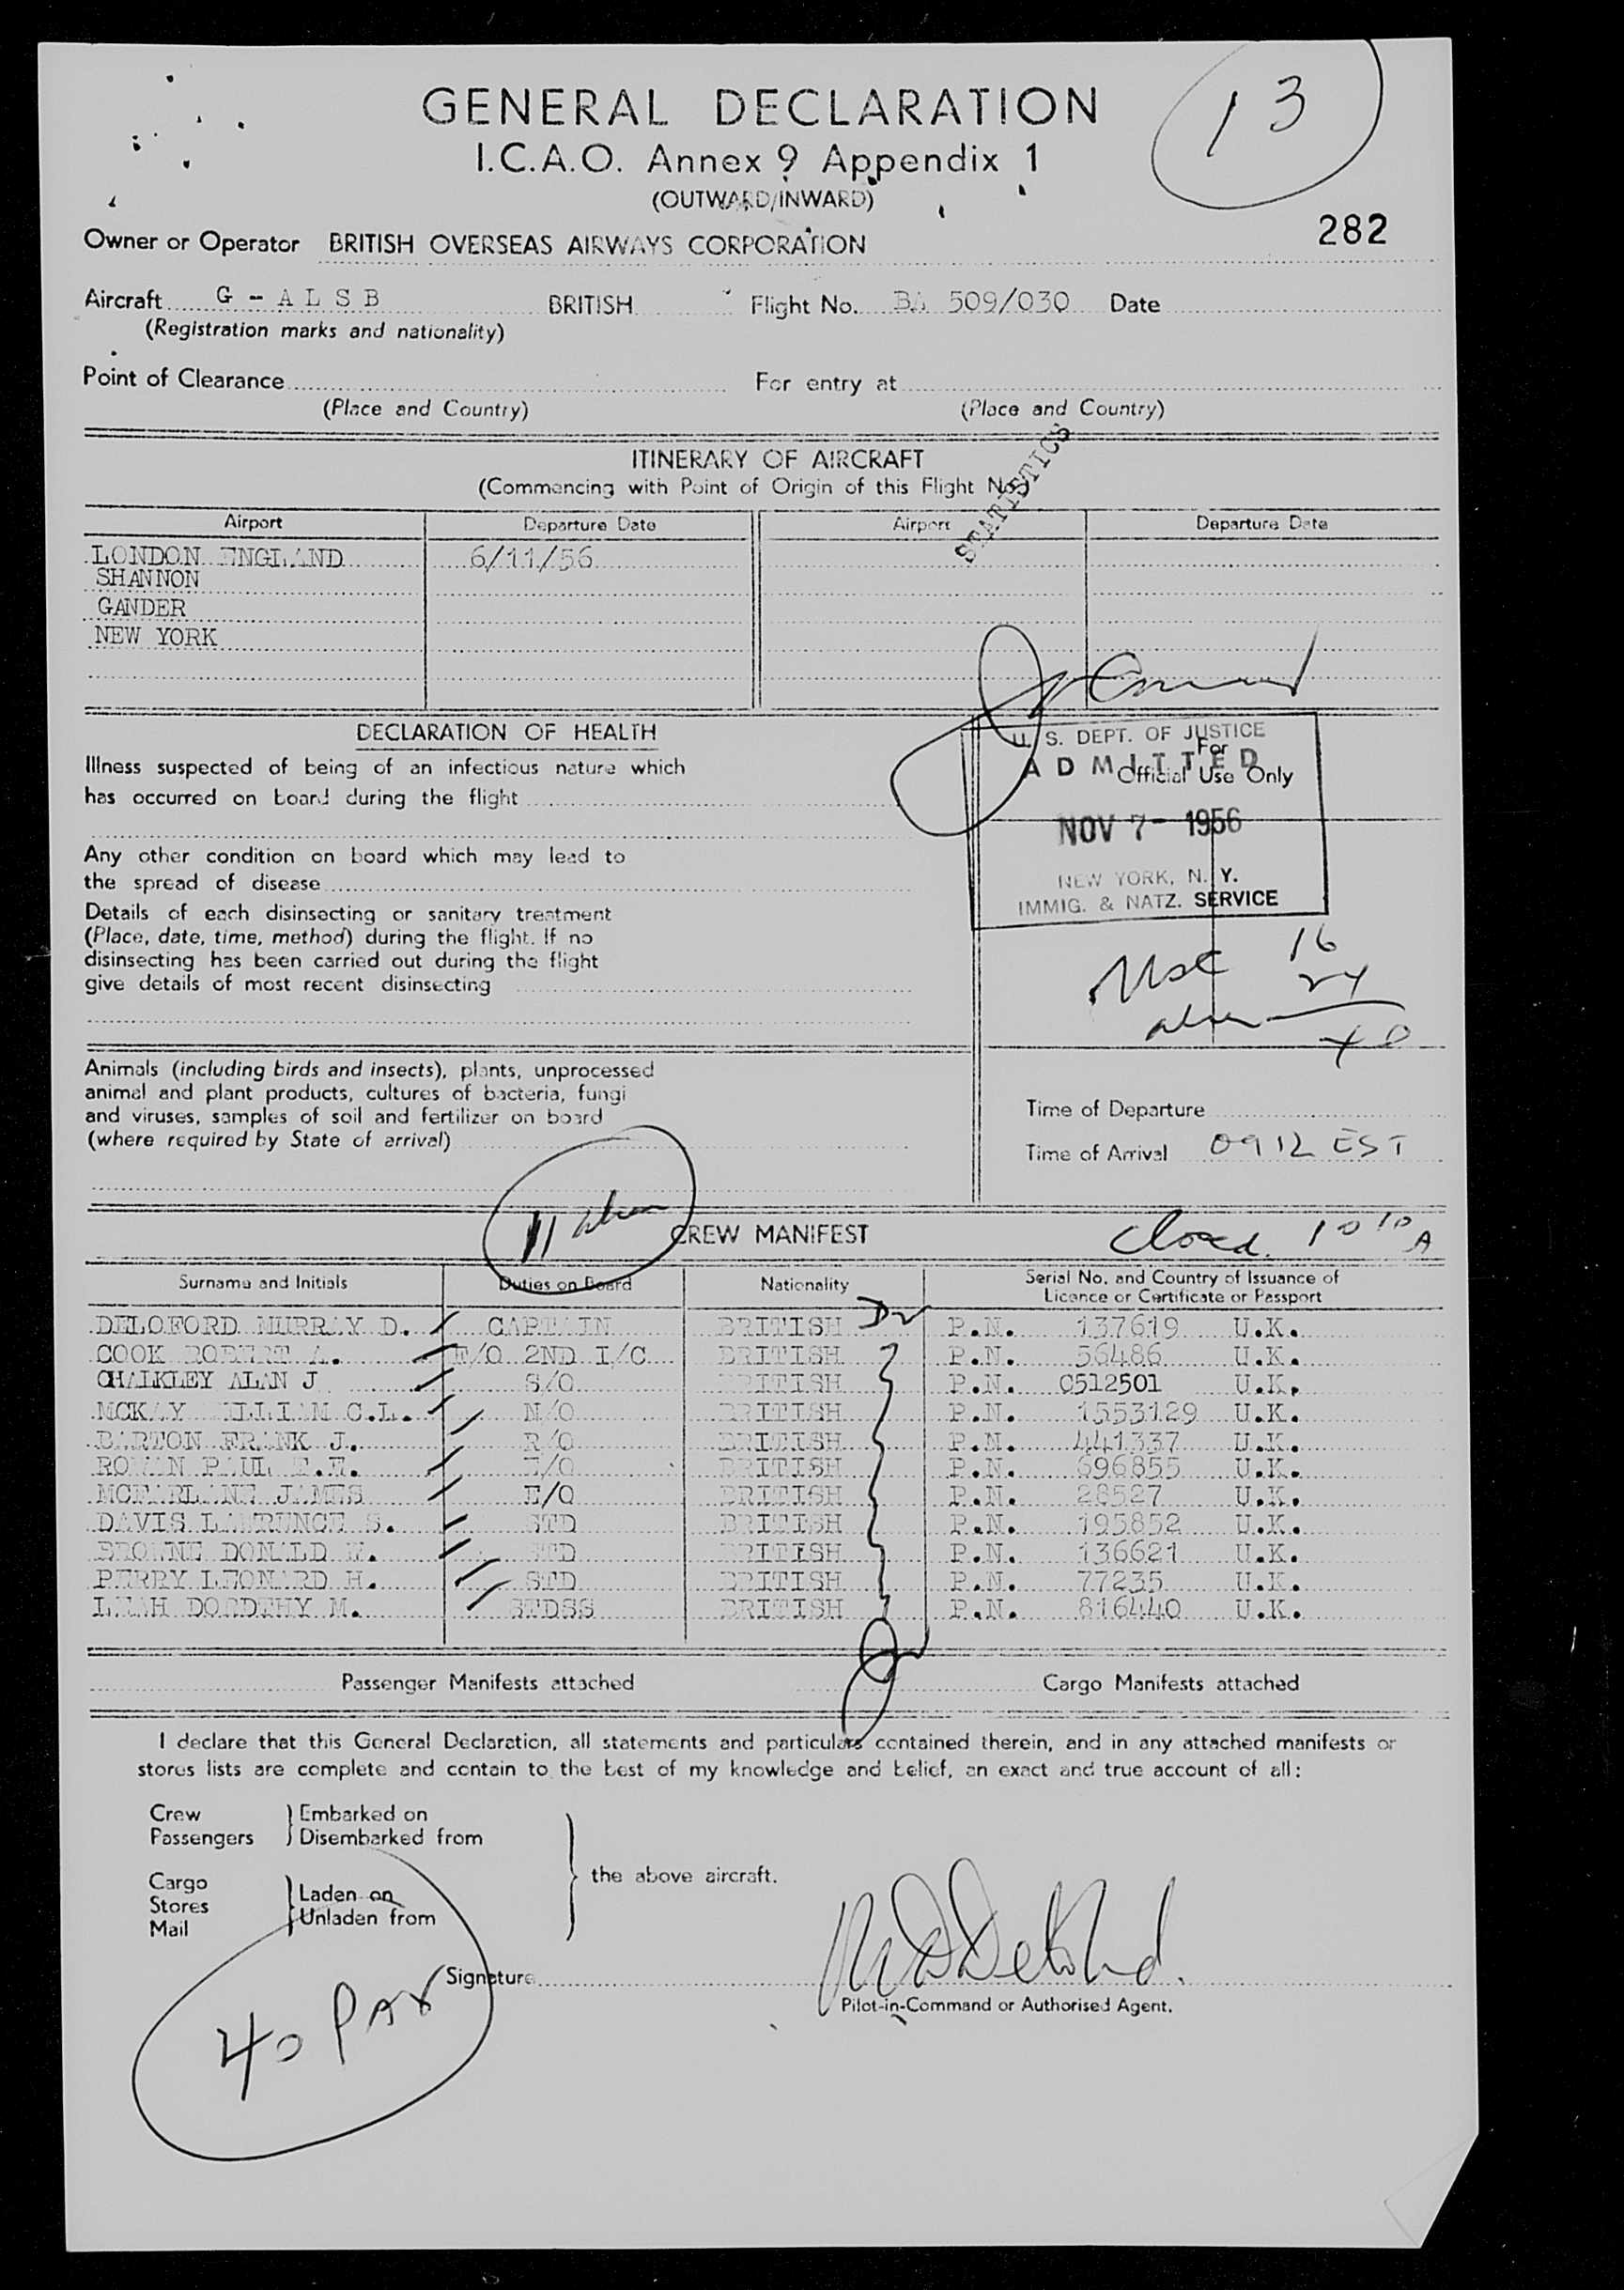 13
GENERAL DECLARATION
I.C.A.O. Annex 9 Appendix 1
(OUTWARD/INWARD)
282
Owner or Operator BRITISH OVERSEAS AIRWAYS CORPORATION
Aircraft G - A L S B BRITISH Flight No. BA 509/030 Date
(Registration marks and nationality)
Point of Clearance For entry at
(Place and Country) (Place and Country)
STATISTICS
ITINERARY OF AIRCRAFT
(Commencing with Point of Origin of this Flight No.)
Airport Departure Date Airport Departure Date
LONDON ENGLAND 6/11/56
SHANNON
GANDER
NEW YORK
DECLARATION OF HEALTH
Illness suspected of being of an infectious nature which
has occurred on board during the flight
Any other condition on board which may lead to
the spread of disease
Details of each disinsecting or sanitary treatment
(Place, date, time, method) during the flight. If no
disinsecting has been carried out during the flight
give details of most recent disinsecting
For
Official Use Only
U. S. DEPT. OF JUSTICE
ADMITTED
NOV 7- 1956
NEW YORK, N. Y.
IMMIG. & NATZ. SERVICE
USC 16
alien 24
40
Animals (including birds and insects), plants, unprocessed
animal and plant products, cultures of bacteria, fungi
and viruses, samples of soil and fertilizer on board
(where required by State of arrival)
Time of Departure
Time of Arrival 0912 EST
11 alien
CREW MANIFEST
Closed 10 10 A
Surname and Initials Duties on Board Nationality Serial No. and Country of Issuance of
Licence or Certificate or Passport
MURRAY D. CAPTAIN BRITISH P.N. 137619 U.K.
COOK ROBERT A. F/O 2ND I/C BRITISH P.N. 56486 U.K.
CHALKLEY ALAN J S/O BRITISH P.N. C512501 U.K.
MCKAY WILLIAM C.L. N/O BRITISH P.N. 1553129 U.K.
BARTON FRANK J. R/O BRITISH P.N. 441337 U.K.
PAUL E/O BRITISH P.N. 696855 U.K.
MCFARLANE JAMES E/O BRITISH P.N. 28527 U.K.
DAVIS LAWRENCE S. STD BRITISH P.N. 195852 U.K.
BROWNE DONALD W. STD BRITISH P.N. 136621 U.K.
PERRY LEONARD H. STD BRITISH P.N. 77235 U.K.
LEAH DORDTHY M. STDSS BRITISH P.N. 816440 U.K.
Passenger Manifests attached Cargo Manifests attached
I declare that this General Declaration, all statements and particulars contained therein, and in any attached manifests or
stores lists are complete and contain to the best of my knowledge and belief, an exact and true account of all:
Crew Embarked on
Passengers Disembarked from
the above aircraft.
Cargo
Stores Laden on
Mail Unladen from
Signature
Pilot-in-Command or Authorised Agent.
40 PAX